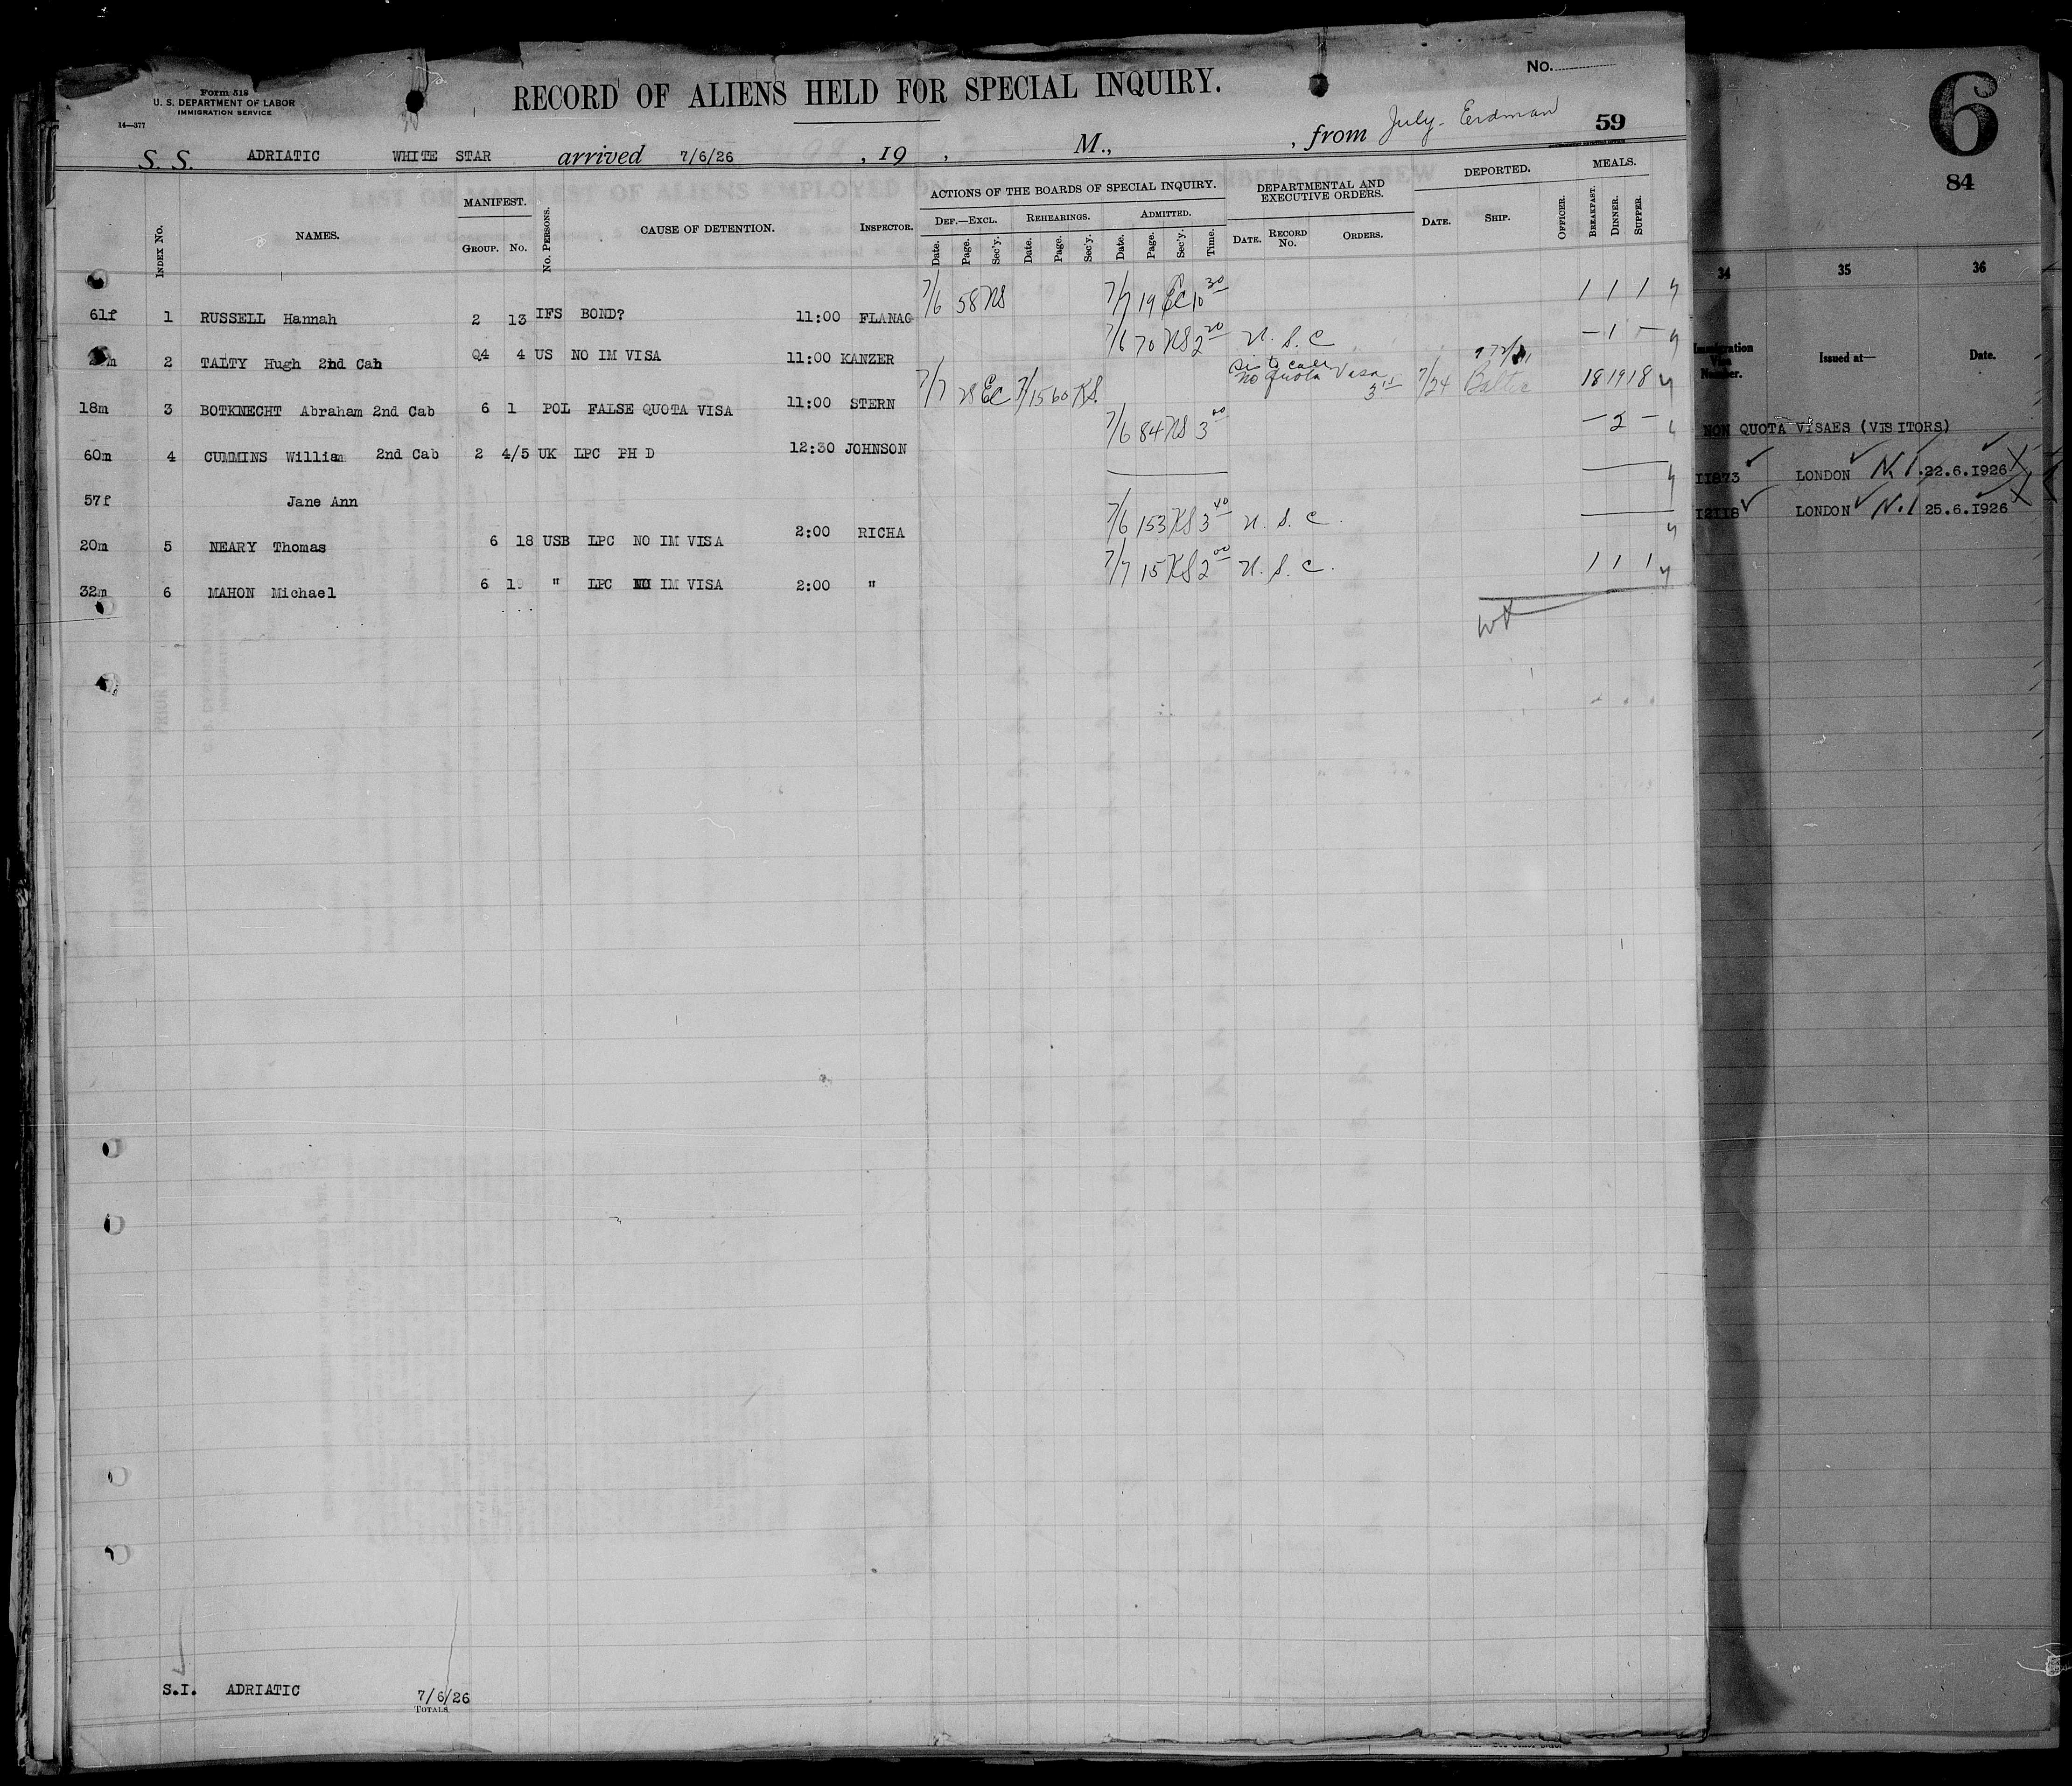 Form 518
U. S. DEPARTMENT OF LABOR
IMMIGRATION SERVICE
14—377
RECORD OF ALIENS HELD FOR SPECIAL INQUIRY.
No.
59
S. S. ADRIATIC WHITE STAR arrived 7/6/26 , 19 , M., , from July- Erdman
INDEX No. NAMES. MANIFEST. GROUP. No. No. PERSONS. CAUSE OF DETENTION. INSPECTOR. ACTIONS OF THE BOARDS OF SPECIAL INQUIRY. DEF.—EXCL. Date. Page. Sec'y. REHEARINGS. Date. Page. Sec'y. ADMITTED. Date. Page. Sec'y. Time. DEPARTMENTAL AND EXECUTIVE ORDERS. DATE. RECORD No. ORDERS. DEPORTED. DATE. SHIP. OFFICER. MEALS. BREAKFAST. DINNER. SUPPER.
61f 1 RUSSELL Hannah 2 13 IFS BOND? 11:00 FLANAG 7/6 58 NS 7/7 19 EC 10 30 1 1 1
2 TALTY Hugh 2nd Cab Q4 4 US NO IM VISA 11:00 KANZER 7/6 70 KS 2 20 U. S. C — 1 —
18m 3 BOTKNECHT Abraham 2nd Cab 6 1 POL FALSE QUOTA VISA 11:00 STERN 7/7 28 EC 7/15 60 KS. No Quota Visa 3 15 7/24 Baltic 18 19 18
60m 4 CUMMINS William 2nd Cab 2 4/5 UK LPC PH D 12:30 JOHNSON 7/6 84 NS 3 00 — 2 —
57f Jane Ann
20m 5 NEARY Thomas 6 18 USB LPC NO IM VISA 2:00 RICHA 7/6 153 KS 3 40 U. S. C.
32m 6 MAHON Michael 6 19 " LPC NO IM VISA 2:00 " 7/7 15 KS 2 00 U. S. C. 1 1 1
S.I. ADRIATIC 7/6/26
TOTALS
6
84
34 35 36
Immigration Visa Number. Issued at— Date.
NON QUOTA VISAES (VISITORS)
11873 LONDON N.I. 22.6.1926
12118 LONDON N.I 25.6.1926